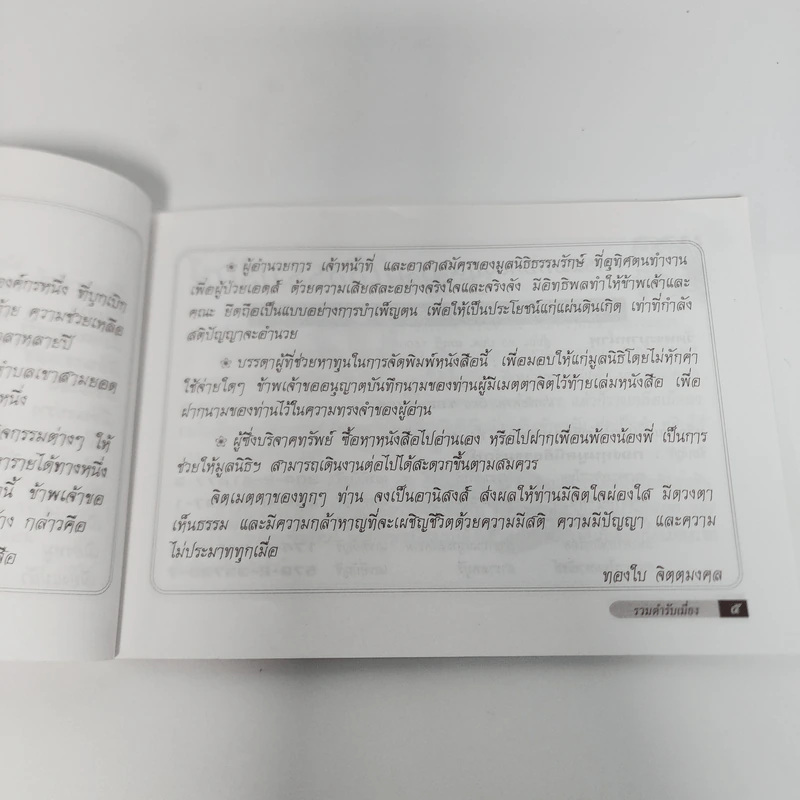 องค์กรหนึ่ง ที่บุกเบิก
ความช่วยเหลือ
หลายปี
ตำบลเขาสามยอด
หนึ่ง
กิจกรรมต่างๆ ให้
รายได้ทางหนึ่ง
นี้ ข้าพเจ้าขอ
กล่าวคือ
❀ ผู้อำนวยการ เจ้าหน้าที่ และอาสาสมัครของมูลนิธิธรรมรักษ์ ที่อุทิศตนทำงาน
เพื่อผู้ป่วยเอดส์ ด้วยความเสียสละอย่างจริงใจและจริงจัง มีอิทธิพลทำให้ข้าพเจ้าและ
คณะ ยึดถือเป็นแบบอย่างการบำเพ็ญตน เพื่อให้เป็นประโยชน์แก่แผ่นดินเกิด เท่าที่กำลัง
สติปัญญาจะอำนวย
❀ บรรดาผู้ที่ช่วยหาทุนในการจัดพิมพ์หนังสือนี้ เพื่อมอบให้แก่มูลนิธิโดยไม่หักค่า
ใช้จ่ายใดๆ ข้าพเจ้าขออนุญาตบันทึกนามของท่านผู้มีเมตตาจิตไว้ท้ายเล่มหนังสือ เพื่อ
ฝากนามของท่านไว้ในความทรงจำของผู้อ่าน
❀ ผู้ซึ่งบริจาคทรัพย์ ซื้อหาหนังสือไปอ่านเอง หรือไปฝากเพื่อนพ้องน้องพี่ เป็นการ
ช่วยให้มูลนิธิฯ สามารถเดินงานต่อไปได้สะดวกขึ้นตามสมควร
จิตเมตตาของทุกๆ ท่าน จงเป็นอานิสงส์ ส่งผลให้ท่านมีจิตใจผ่องใส มีดวงตา
เห็นธรรม และมีความกล้าหาญที่จะเผชิญชีวิตด้วยความมีสติ ความมีปัญญา และความ
ไม่ประมาททุกเมื่อ
ทองใบ จิตตมงคล
รวมตำรับเมี่ยง ๕